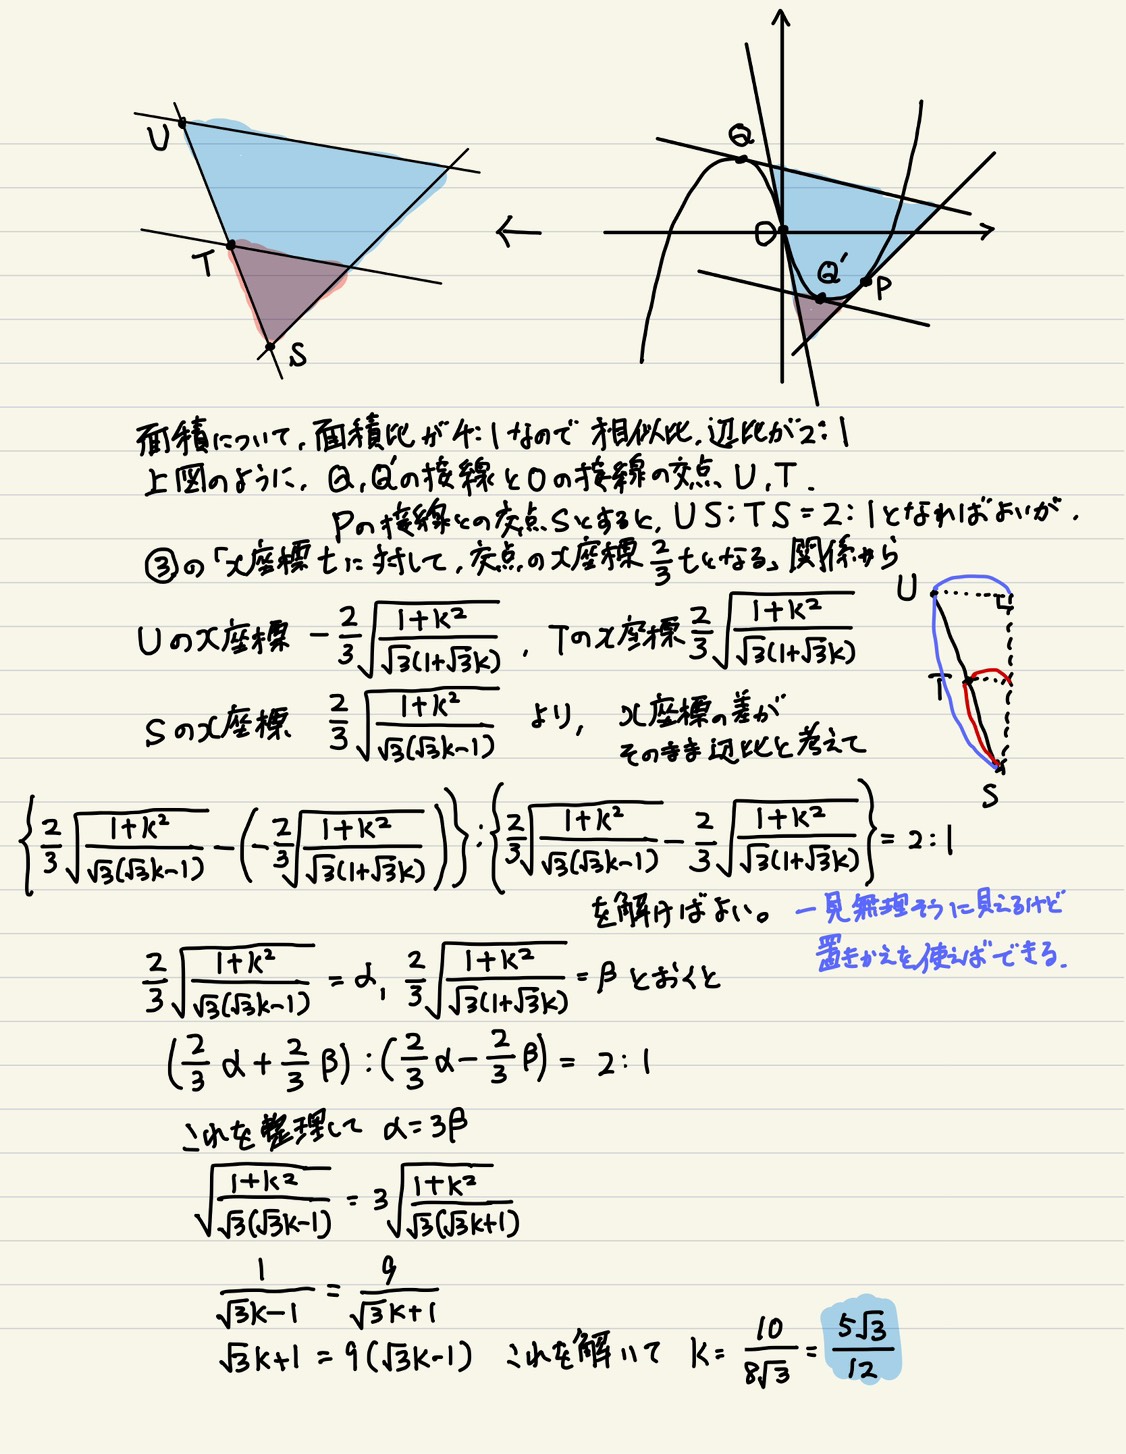 U
T
S
Q
O
Q'
P
面積について,面積比が4:1なので 相似比,辺比が2:1
上図のように, Q,Q'の接線とOの接線の交点、U,T.
Pの接線との交点Sとすると, US:TS=2:1となればよいが,
③の「x座標tに対して,交点のx座標 2/3 tとなる」関係から
U
T
S
Uのx座標 -2/3 √((1+k²)/(√3(1+√3k))) , Tのx座標 2/3 √((1+k²)/(√3(1+√3k)))
Sのx座標 2/3 √((1+k²)/(√3(√3k-1))) より, x座標の差が
そのまま辺比と考えて
{2/3 √((1+k²)/(√3(√3k-1))) - (-2/3 √((1+k²)/(√3(1+√3k))))} : {2/3 √((1+k²)/(√3(√3k-1))) - 2/3 √((1+k²)/(√3(1+√3k)))} = 2:1
を解けばよい。 一見無理そうに見えるけど
置きかえを使えばできる.
2/3 √((1+k²)/(√3(√3k-1))) = α, 2/3 √((1+k²)/(√3(1+√3k))) = β とおくと
(2/3 α + 2/3 β) : (2/3 α - 2/3 β) = 2:1
これを整理して α=3β
√((1+k²)/(√3(√3k-1))) = 3√((1+k²)/(√3(√3k+1)))
1/(√3k-1) = 9/(√3k+1)
√3k+1 = 9(√3k-1) これを解いて k= 10/8√3 = 5√3/12